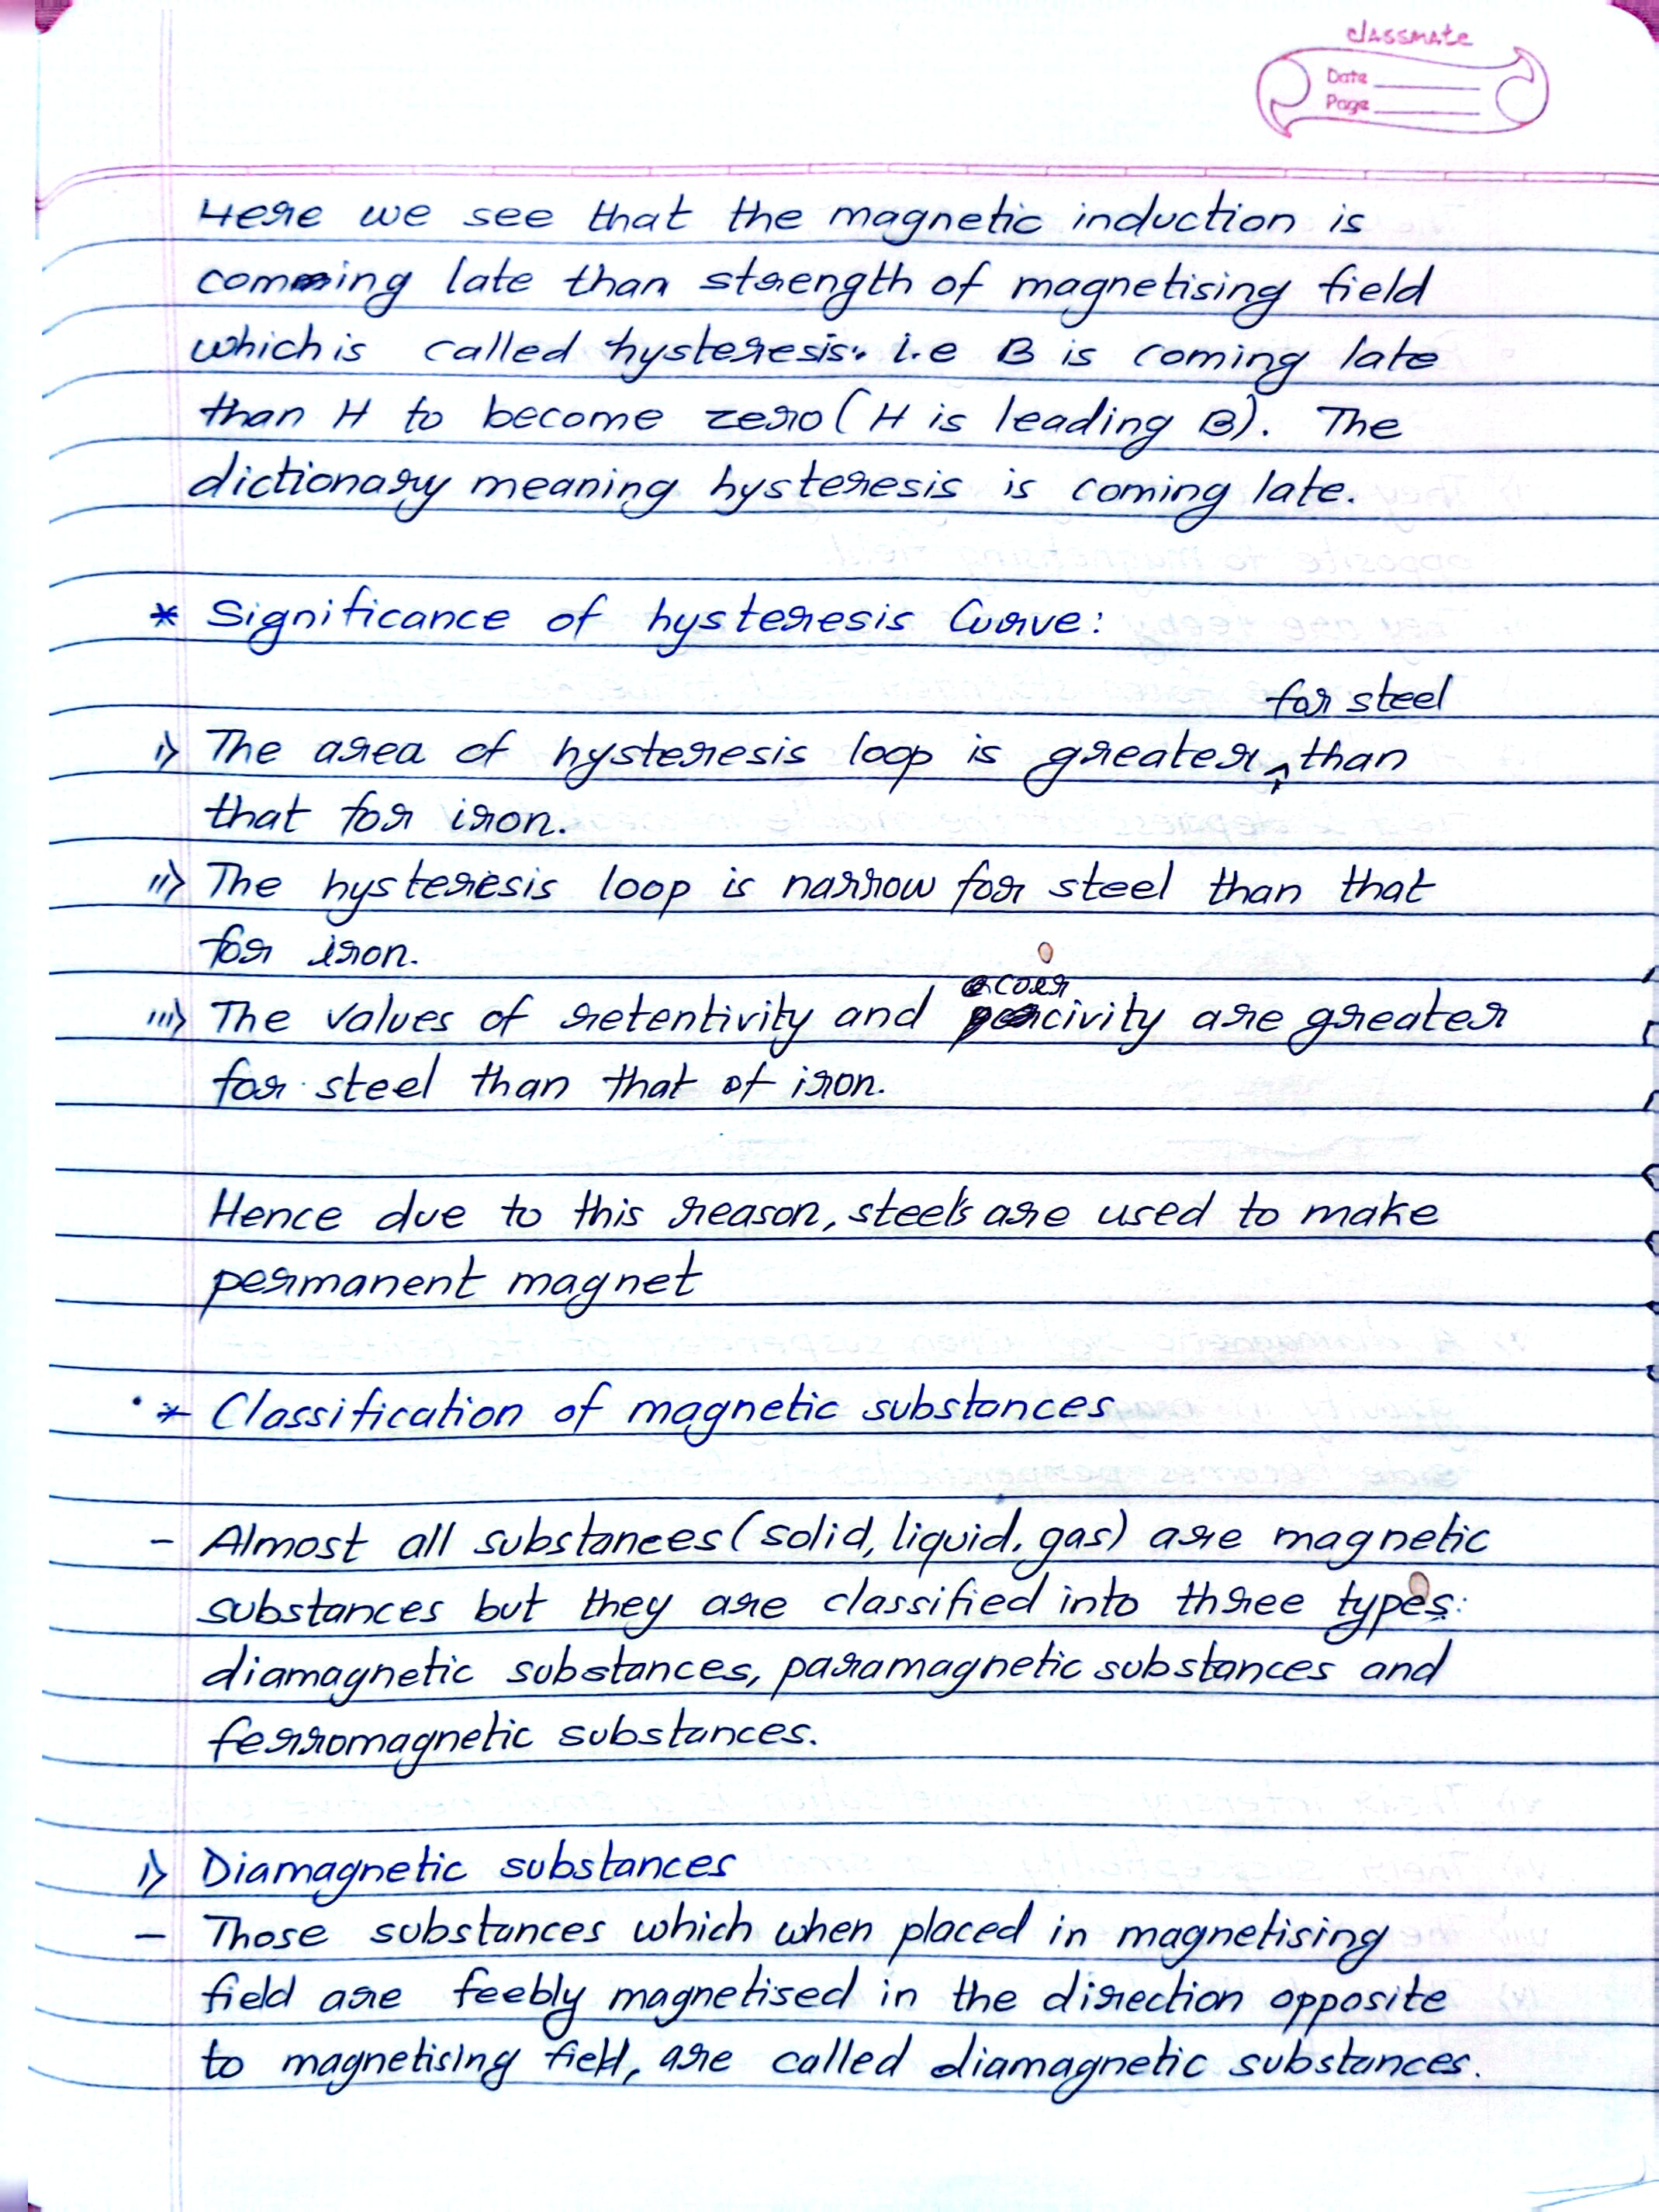 classmate
Date
Page
Here we see that the magnetic induction is
comming late than strength of magnetising field
which is called hysteresis. i.e B is coming late
than H to become zero (H is leading B). The
dictionary meaning hysteresis is coming late.
* Significance of hysteresis Curve:
for steel
i) The area of hysteresis loop is greater ^ than
that for iron.
ii) The hysteresis loop is narrow for steel than that
for iron.
coer
iii) The values of retentivity and civity are greater
for steel than that of iron.
Hence due to this reason, steels are used to make
permanent magnet
* Classification of magnetic substances
- Almost all substances (solid, liquid, gas) are magnetic
substances but they are classified into three types:
diamagnetic substances, paramagnetic substances and
ferromagnetic substances.
i) Diamagnetic substances
- Those substances which when placed in magnetising
field are feebly magnetised in the direction opposite
to magnetising field, are called diamagnetic substances.